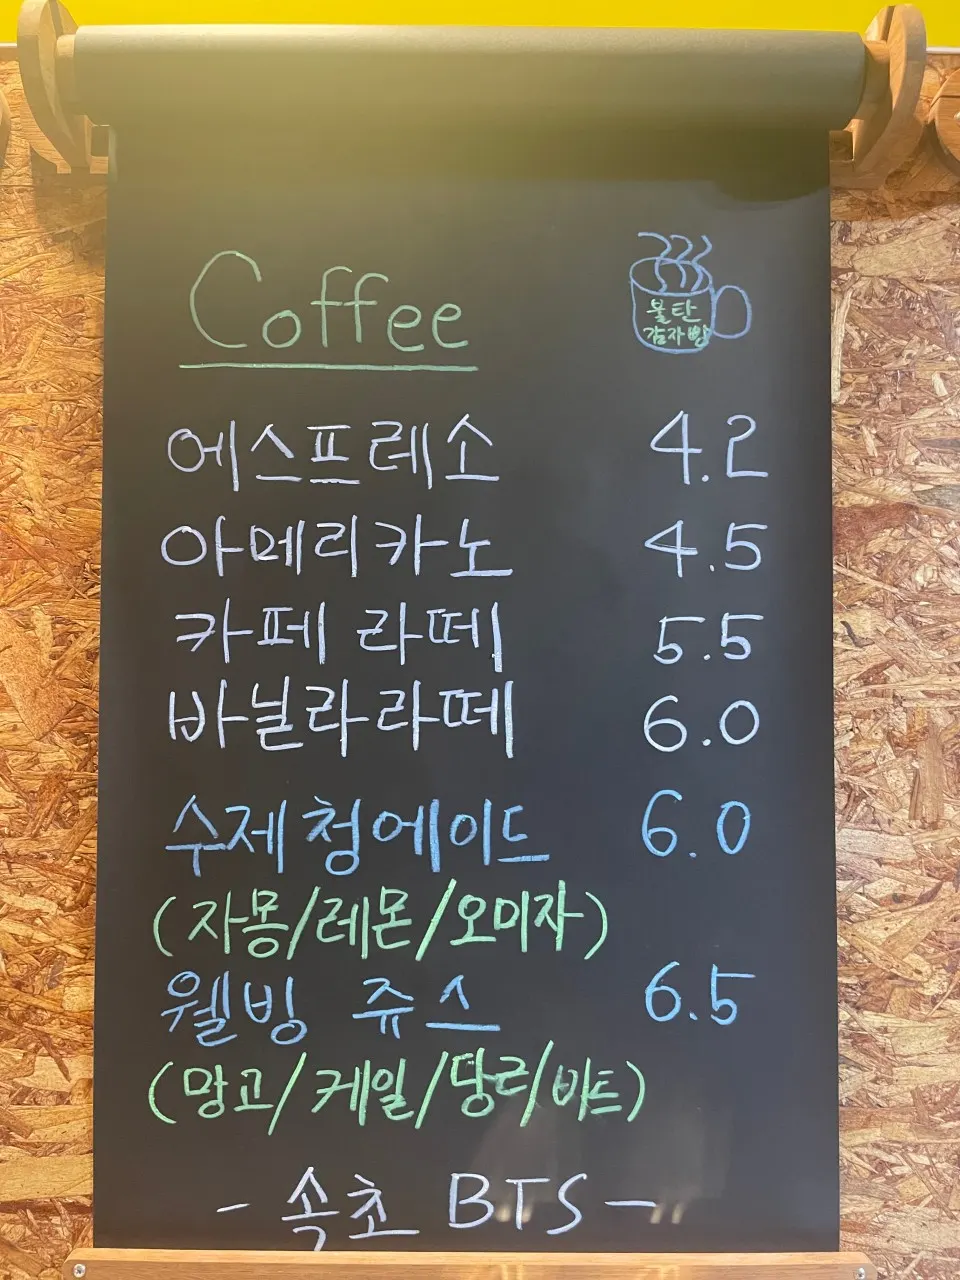 Coffee
불탄
감자빵
에스프레소 4.2
아메리카노 4.5
카페 라떼 5.5
바닐라라떼 6.0
수제청에이드 6.0
(자몽/레몬/오미자)
웰빙 쥬스 6.5
(망고/케일/당근/비트)
- 속초 BTS -